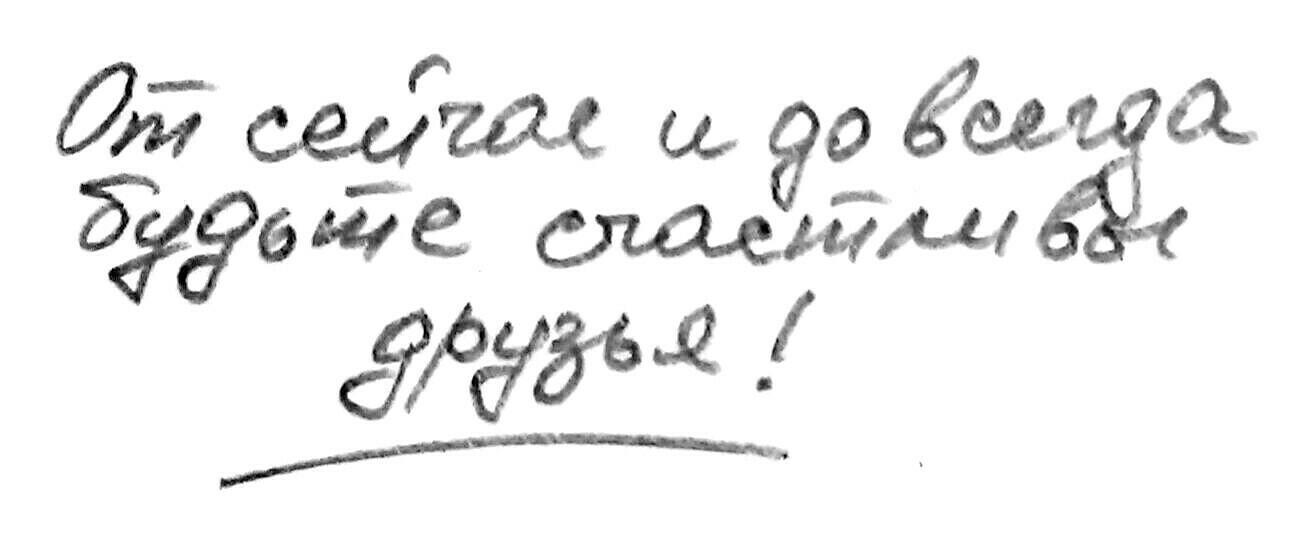 От сейчас и до всегда
будьте счастливы
друзья!